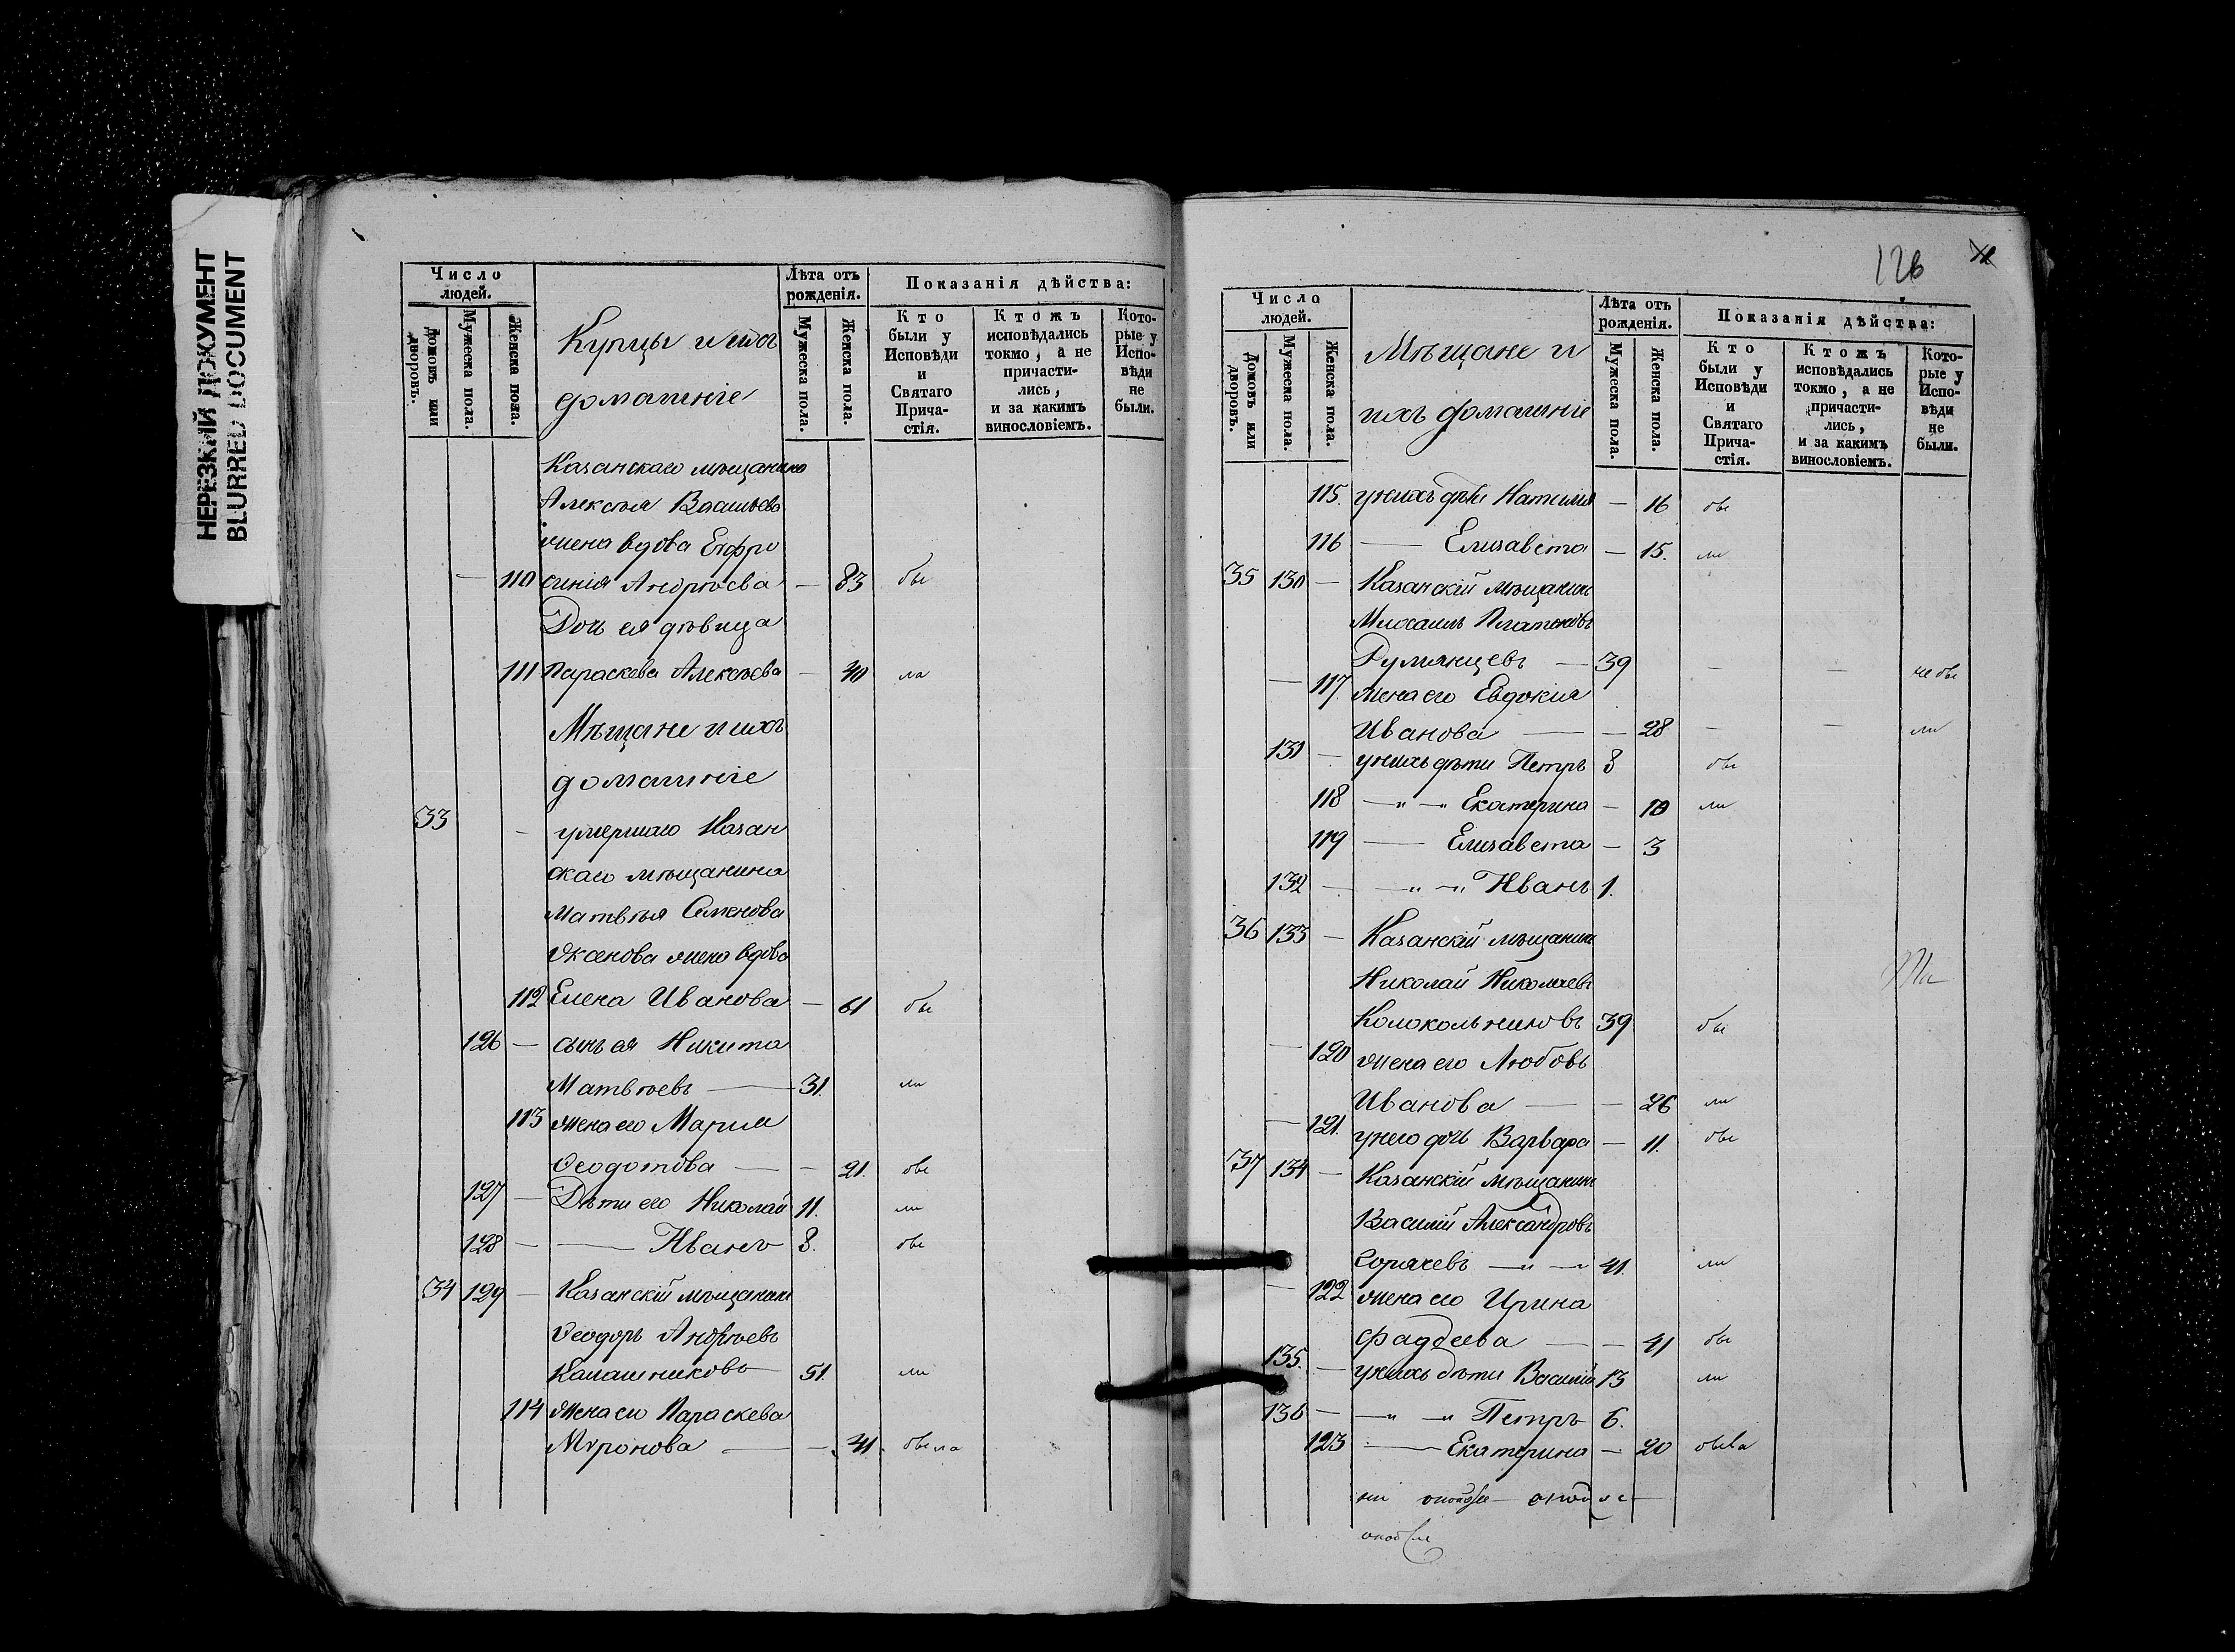 НЕРЕЗКИЙ ДОКУМЕНТ
BLURRED DOCUMENT
Число людей.
Домовъ или дворовъ.
Мужеска пола.
Женска пола.
Купцы и ихъ
домашніе
Лѣта отъ рожденія.
Мужеска пола.
Женска пола.
Показанія дѣйства:
Кто были у Исповѣди и Святаго Прича-стія.
Ктожъ исповѣдались токмо, а не причасти-лись, и за какимъ винословіемъ.
Кото-рые у Испо-вѣди не были.
Казанскаго мѣщанина
Алексѣя Васильева
жена вдова Евфро
— 110 синія Андрѣева — 83 бы
Дочь ея дѣвица
111 Параскева Алексѣева — 40 ла
Мѣщане и ихъ
домашніе
33 — умершаго Казан
скаго мѣщанина
Матвѣя Семенова
жена вдова
112 Елена Иванова — 61 бы
126 — сынъ ея Никита
Матвѣевъ — 31. ли
113 жена его Марія
Ѳеодотова — — 21. бы
127 — Дѣти его Николай 11. ли
128 — — Иванъ 8. бы
34 129 — Казанскій мѣщанинъ
Ѳеодоръ Андрѣевъ
Калашниковъ — 51. ли
114 жена его Параскева
Мѵронова — — 41. была
126
Число людей.
Домовъ или дворовъ.
Мужеска пола.
Женска пола.
Мѣщане и
ихъ домашніе
Лѣта отъ рожденія.
Мужеска пола.
Женска пола.
Показанія дѣйства:
Кто были у Исповѣди и Святаго Прича-стія.
Ктожъ исповѣдались токмо, а не причасти-лись, и за какимъ винословіемъ.
Кото-рые у Испо-вѣди не были.
115. у нихъ дѣти Наталія — 16 бы
116 — Елизавета — 15. ли
35 130 — Казанскій мѣщанинъ
Михаилъ Платоновъ
Румянцевъ — 39 — — не бы
— 117 жена его Евдокія
Иванова — — 28 — — ли
131 — у нихъ дѣти Петръ 8 бы
118 — " — Екатерина — 10 ли
119 — Елизавета — 3
132 — — " — " Иванъ 1.
36 133 — Казанскій мѣщанинъ
Николай Николаевъ
Колокольниковъ 39 бы
— 120 жена его Любовь
Иванова — — 26 ли
— 121. у него дочь Варвара — 11. бы
37 134 — Казанскій мѣщанинъ
Василій Александровъ
Горячевъ — " — 41. ли
— 122 жена его Ирина
Фаддеева — — 41 бы
135. — у нихъ дѣти Василій 13 ли
136 — — " — " Петръ 6.
123 — Екатерина — 20 была